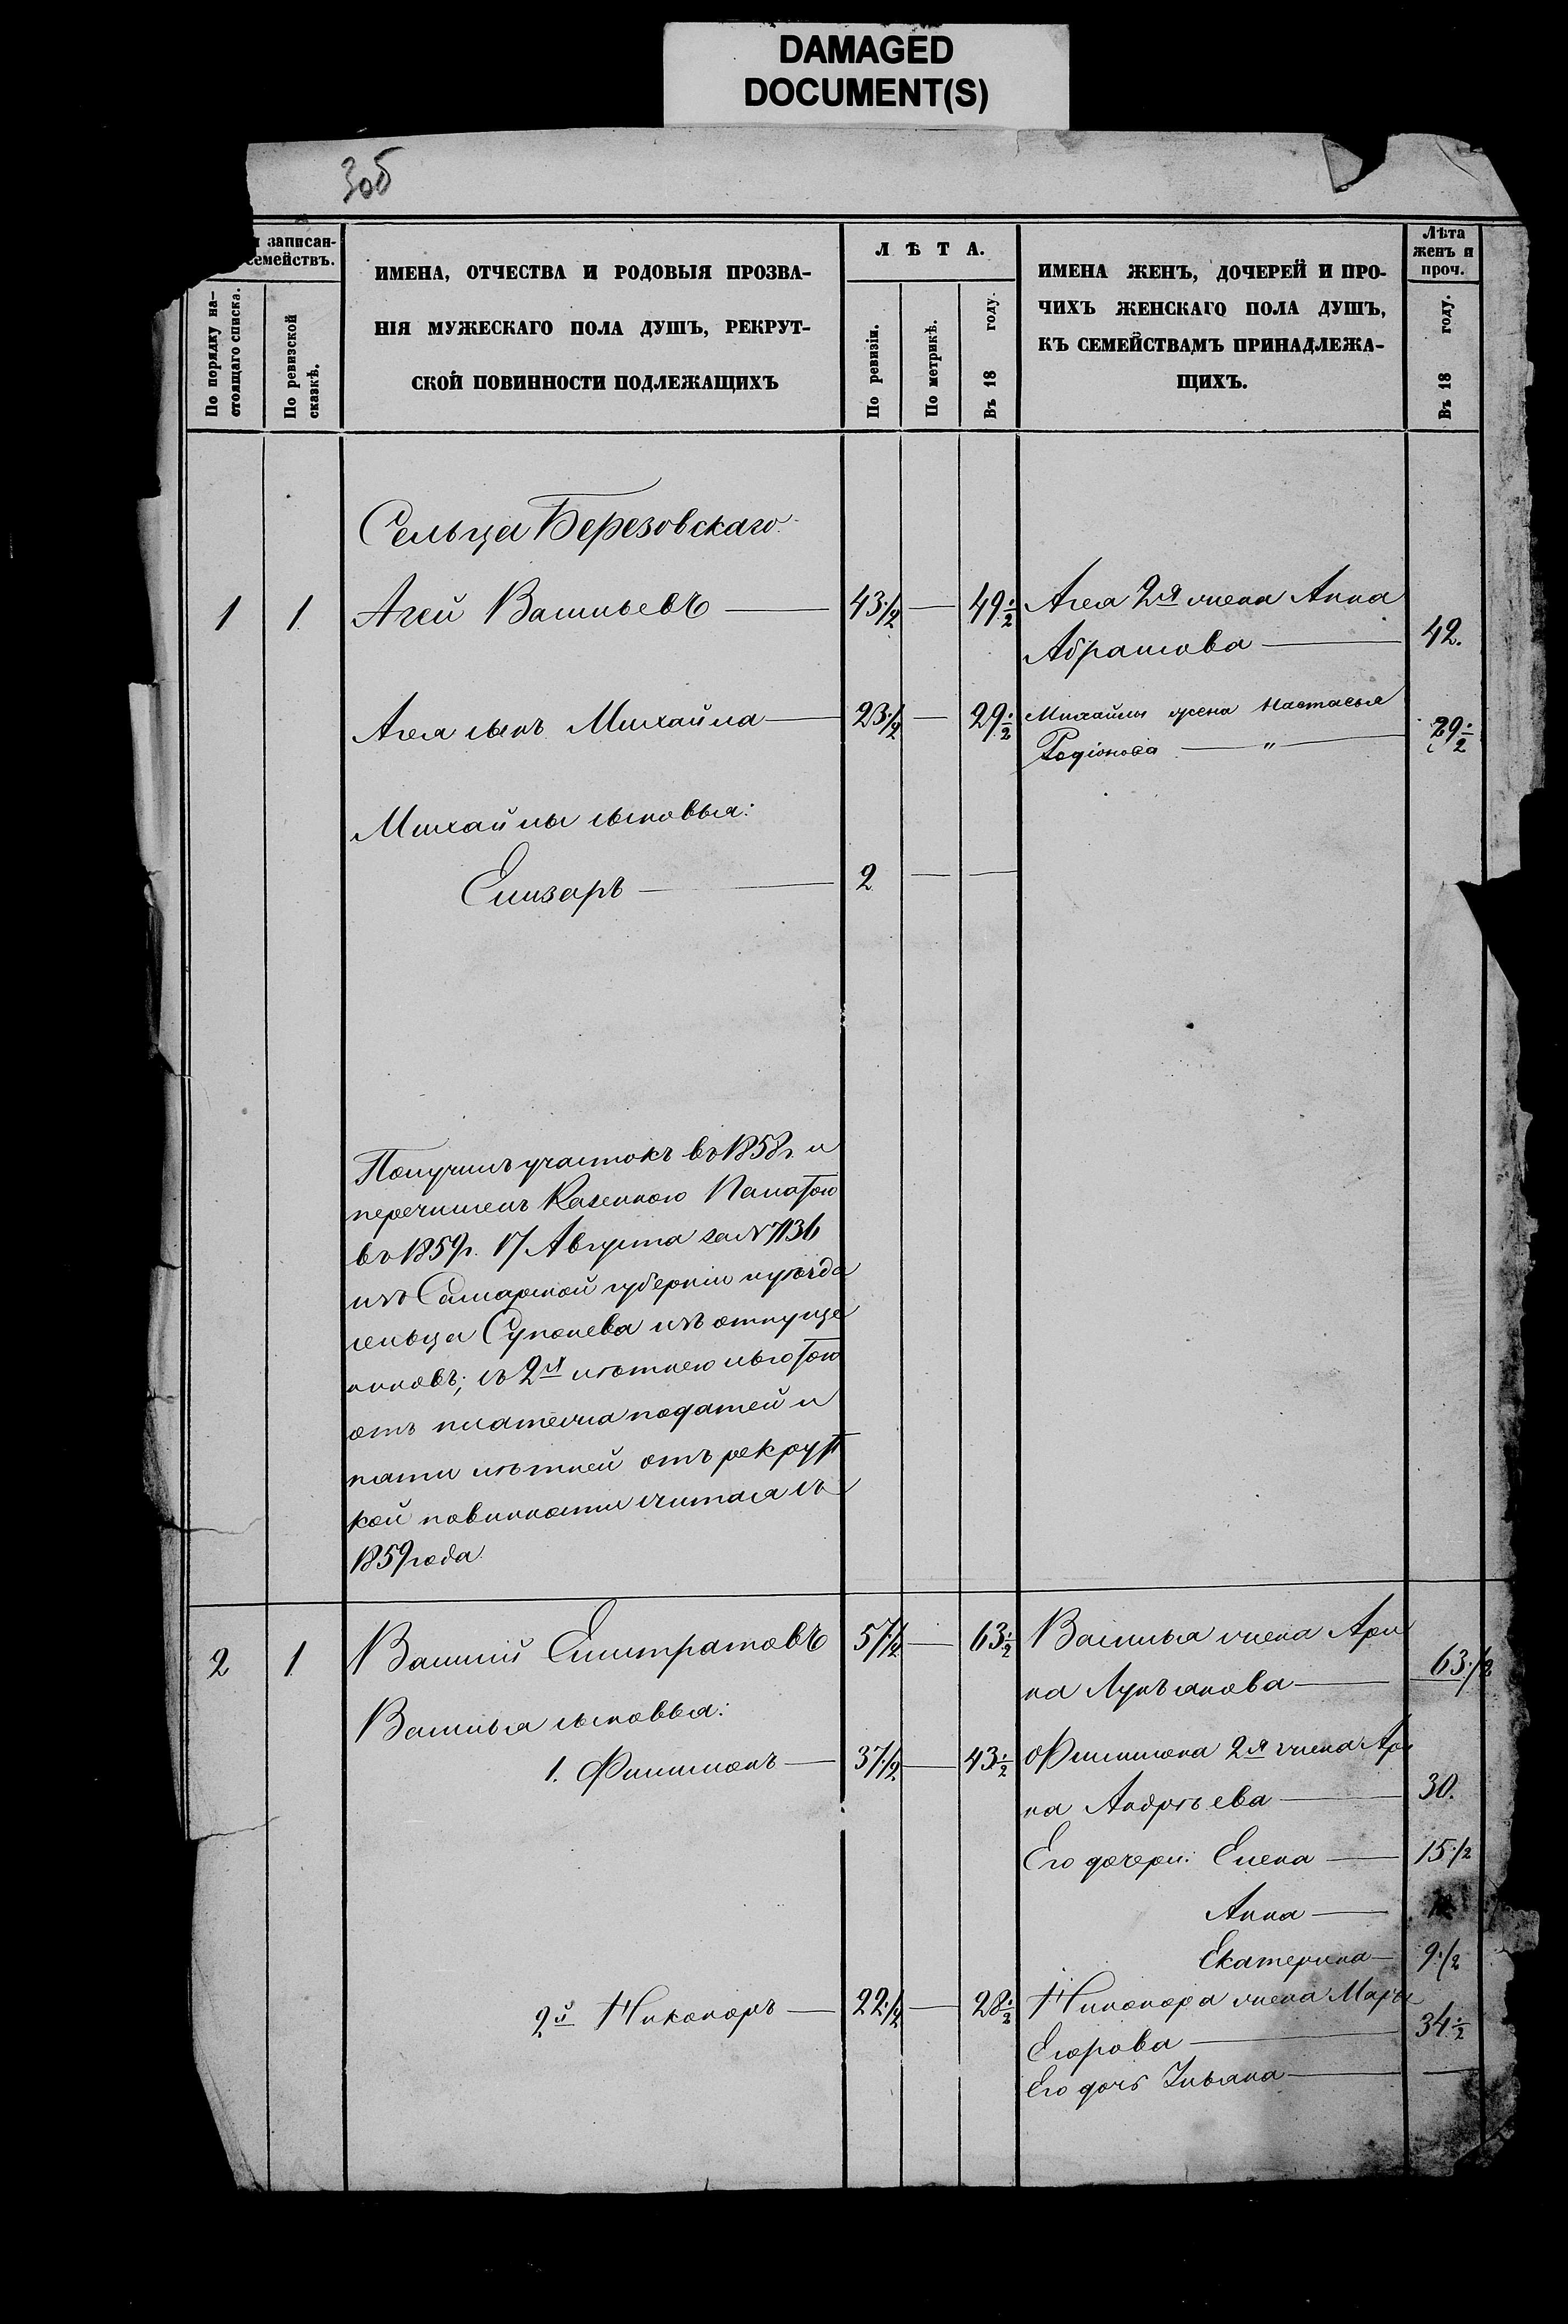 DAMAGED
DOCUMENT(S)
записан-
семействъ.
По порядку на-
стоящаго списка.
По ревизской
сказкѣ.
ИМЕНА, ОТЧЕСТВА И РОДОВЫЯ ПРОЗВА-
НІЯ МУЖЕСКАГО ПОЛА ДУШЪ, РЕКРУТ-
СКОЙ ПОВИННОСТИ ПОДЛЕЖАЩИХЪ
ЛѢТА.
По ревизіи.
По метрикѣ.
Въ 18 году.
ИМЕНА ЖЕНЪ, ДОЧЕРЕЙ И ПРО-
ЧИХЪ ЖЕНСКАГО ПОЛА ДУШЪ,
КЪ СЕМЕЙСТВАМЪ ПРИНАДЛЕЖА-
ЩИХЪ.
Лѣта
женъ и
проч.
Въ 18 году.
Сельца Березовскаго
1 1 Агей Васильевъ 43 1/2 49 1/2 Агея 2я жена Анна
Абрамова 42.
Агея сынъ Михайла 23 1/2 29 1/2 Михайлы жена Настасья
Родіонова " 29 1/2
Михайлы сыновья:
Елизаръ 2
Получилъ участокъ въ 1858 г. и
перечисленъ Казенною Палатою
въ 1859 г. 17 Августа за № 7136
изъ Самарской губерніи и уѣзда
сельца Супонева изъ отпуще
нниковъ; съ 2х лѣтнею льготою
отъ платежа податей и
пяти лѣтней отъ рекрут
кой повинности считая съ
1859 года
2 1 Василій Елистратовъ 57 1/2 63 1/2 Василья жена Ари
на Лукъянова 63 1/2
Василья сыновья:
1. Филимонъ 37 1/2 43 1/2 Филимона 2я жена Ари
на Андрѣева 30.
Его дочери: Елена 15 1/2
Анна
Екатерина 9 1/2
2й Никоноръ 22 1/2 28 1/2 Никонора жена Марья
Егорова 34 1/2
Его дочь Ульяна